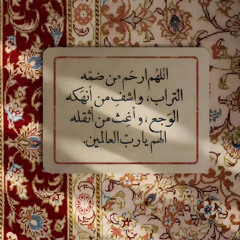 اللهم ارحم من ضمّه
التراب، واشفِ من أنهكه
الوجع، وأغِث من أثقله
الهم يا ربّ العالمين.